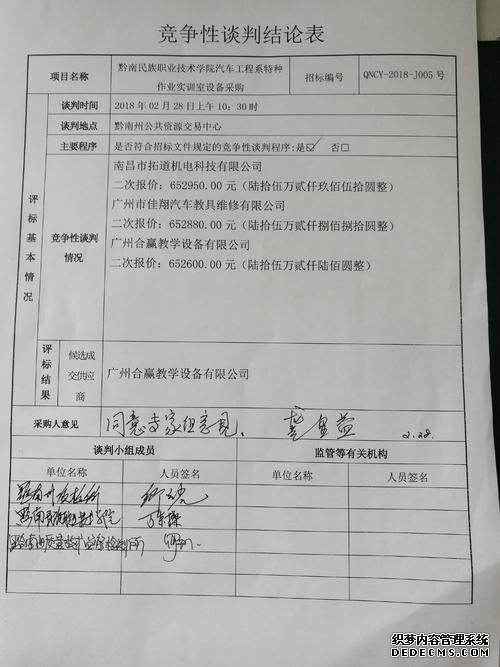 竞争性谈判结论表
项目名称
黔南民族职业技术学院汽车工程系特种
作业实训室设备采购
招标编号
QNCY-2018-J005 号
谈判时间
2018 年 02 月 28 日上午 10：30 时
谈判地点
黔南州公共资源交易中心
主要程序
是否符合招标文件规定的竞争性谈判程序:是☑ 否□
评标基本情况
竞争性谈判
情况
南昌市拓道机电科技有限公司
二次报价：652950.00 元（陆拾伍万贰仟玖佰伍拾圆整）
广州市佳翔汽车教具维修有限公司
二次报价：652880.00 元（陆拾伍万贰仟捌佰捌拾圆整）
广州合赢教学设备有限公司
二次报价：652600.00 元（陆拾伍万贰仟陆佰圆整）
评标结果
候选成
交供应
商
广州合赢教学设备有限公司
采购人意见
同意专家组意见。
2.28.
谈判小组成员
监管等有关机构
单位名称
人员签名
单位名称
人员签名
织梦内容管理系统
DEDECMS.COM